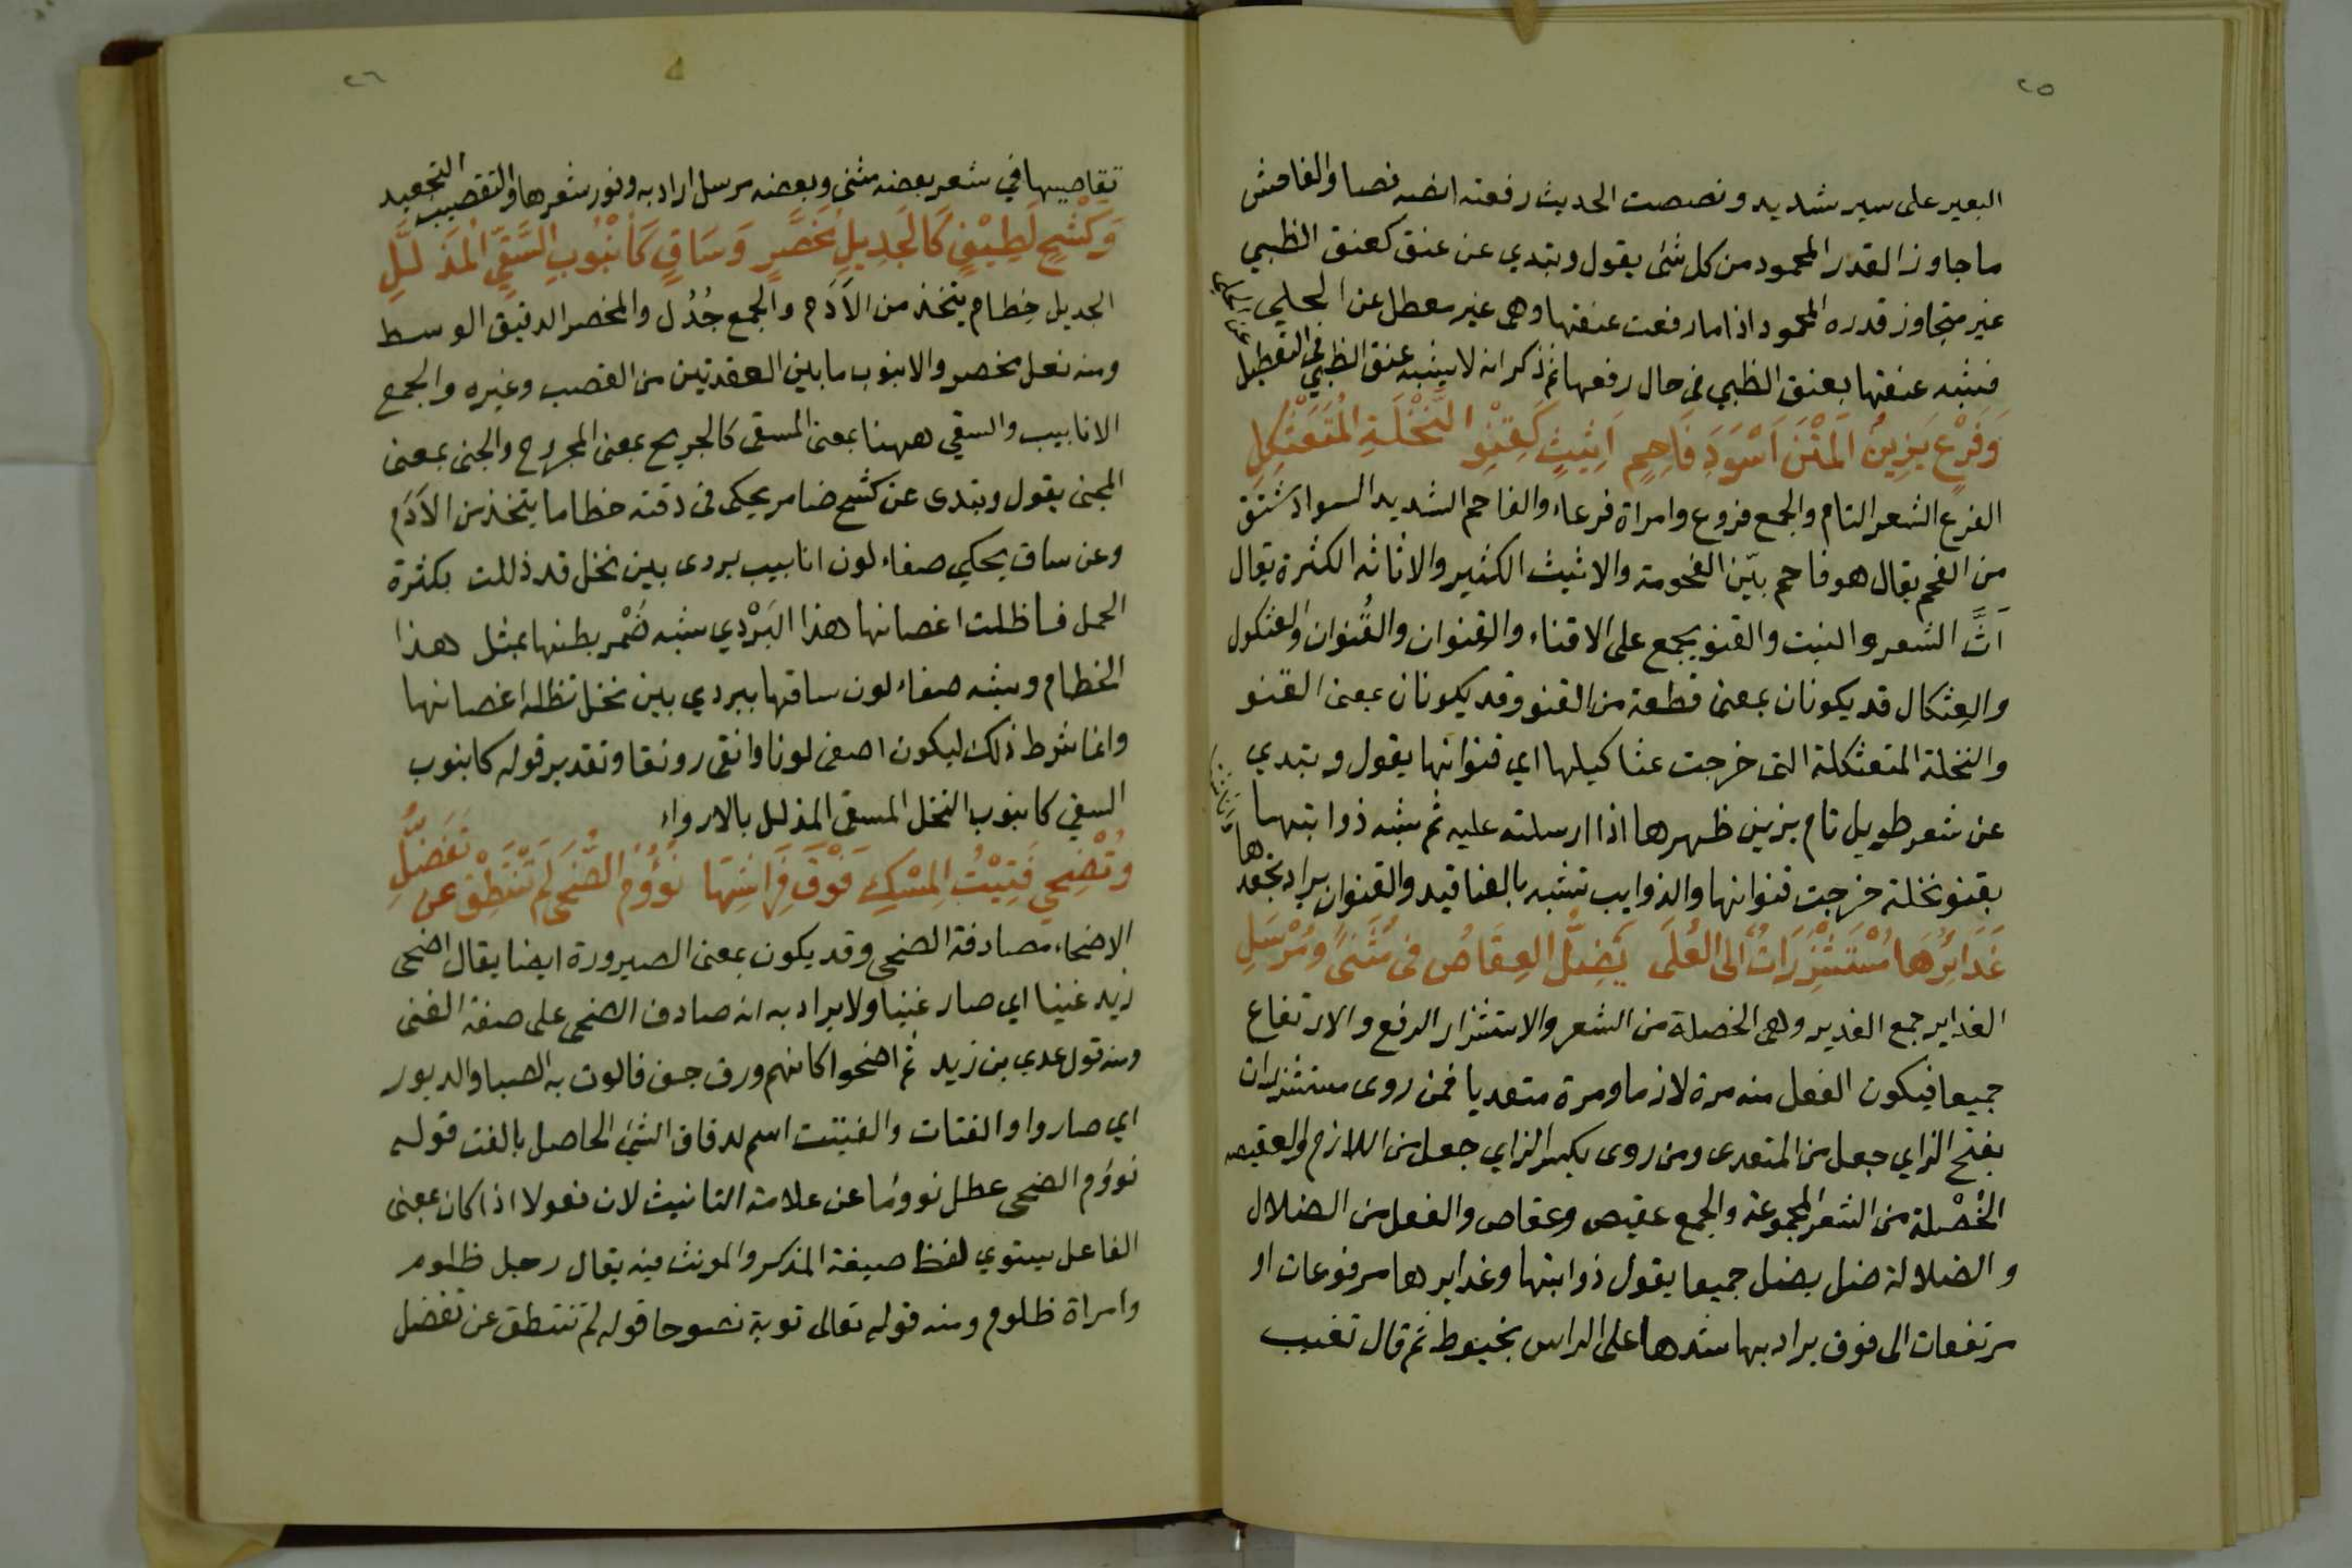 ٢٥
البعير على سير شديد ونصصت الحديث رفعته انصه نصا والفاحش
ما جاوز القدر المحمود من كل شئ يقول وتبدي عن عنق كعنق الظبي
غير متجاوز قدره المحمود اذا ما رفعت عنقها وهي غير معطل عن الحلي
فشبه عنقها بعنق الظبي في حال رفعها ثم ذكر انه لا يشبه عنق الظبي في التعطيل
وَفَرْعٍ يَزِينُ المَتْنَ اَسْوَدَ فَاحِمٍ اَثِيثٍ كَقِنْوِ النَّخْلَةِ المُتَعَثْكِلِ
الفرع الشعر التام والجمع فروع وامراة فرعاء والفاحم الشديد السواد مشتق
من الفحم يقال هو فاحم بيّن الفحومة والاثيث الكثير والاثاثه الكثرة يقال
اَثَّ الشعر والنبت والقنو يجمع على الاقناء والقِنوان والقُنوان والعثكول
والعِثكال قد يكونان بمعنى قطعة من القنو وقد يكونان بمعنى القنو
والنخلة المتعثكلة التى خرجت عثا كيلها اي قنوانها يقول وتبدي
عن شعر طويل تام يزين ظهرها اذا ارسلته عليه ثم شبه ذوابتها
بقنو نخلة خرجت قنوانها والذوايب تشبه بالعنا قيد والقنوان يراد تجعدها
غَدَائِرُهَا مُسْتَشْزِرَاتٌ اِلى العُلَى يَضِلُّ العِقَاصُ في مُثَنىً وَمُرْسَلِ
الغداير جمع الغدير وهى الخصلة من الشعر والاستشزار الرفع والارتفاع
جميعا فيكون الفعل منه مرة لازما ومرة متعديا فمن روى مستشزرات
بفتح الزاي جعل من المتعدى ومن روى بكسر الزاي جعل من اللازم والعقيصه
الخُصْلة من الشعر المجموعة والجمع عقيص وعقاص والفعل من الضلال
والضلالة ضل يضل جميعا يقول ذوابتها وغدايرها مرفوعات او
مرتفعات الى فوق يراد بها شدها على الراس بخيوط ثم قال تغيب
٢٦
تقاصيبها في شعر بعضه مثنى وبعضه مرسل اراد به وفور شعرها والتقصيب التجعيد
وَكَشْحٍ لَطِيْفٍ كَالجَدِيلِ مُخَصَّرٍ وَسَاقٍ كَأُنْبُوبِ السَّقِيّ المُذَلَّلِ
الجديل خِطام يتخذ من الاَدَم والجمع جُدُل والمخصر الدقيق الوسط
ومنه نعل مخصر والانبوب ما بين العقدتين من القصب وغيره والجمع
الانابيب والسقي ههنا بمعنى المسقى كالجريح بمعنى المجروح والجنى بمعنى
المجنى يقول وتبدى عن كشح ضامر يحكى في دقته خطاما يتخذ من الاَدَم
وعن ساق يحكي صفاء لون انابيب بردى بين نخل قد ذللت بكثرة
الحمل فاظلت اغصانها هذا البَرْدي شبه ضُمْر بطنها بمثل هذا
الخطام وشبه صفاء لون ساقها ببردي بين نخل تظله اغصانها
وانما شرط ذلك ليكون اصفى لونا وانقى رونقا وتقدير قوله كانبوب
السقي كانبوب النخل المسقى المذلل بالارواء
وتُضْحِي فَتِيْتُ المِسْكِ فَوْقَ فِرَاشِهَا نَؤُوْمُ الضُّحَى لَمْ تَنْتَطِقْ عن تَفَضُّلِ
الاضحاء مصادفة الضحى وقد يكون بمعنى الصيرورة ايضا يقال اضحى
زيد غنيا اي صار غنيا ولا يراد به انه صادف الضحى على صفة الغنى
ومنه قول عدي بن زيد ثم اضحوا كانهم ورق جف فالوت به الصبا والدبور
اي صاروا والفتات والفتيت اسم لدقاق الشئ الحاصل بالفت قوله
نووُم الضحى عطل نووُما عن علامة التانيث لان فعولا اذا كان بمعنى
الفاعل يستوي لفظ صيغة المذكر والمونث فيه يقال رجل ظلوم
وامراة ظلوم ومنه قوله تعالى توبة نصوحا قوله لم تنتطق عن تفضل